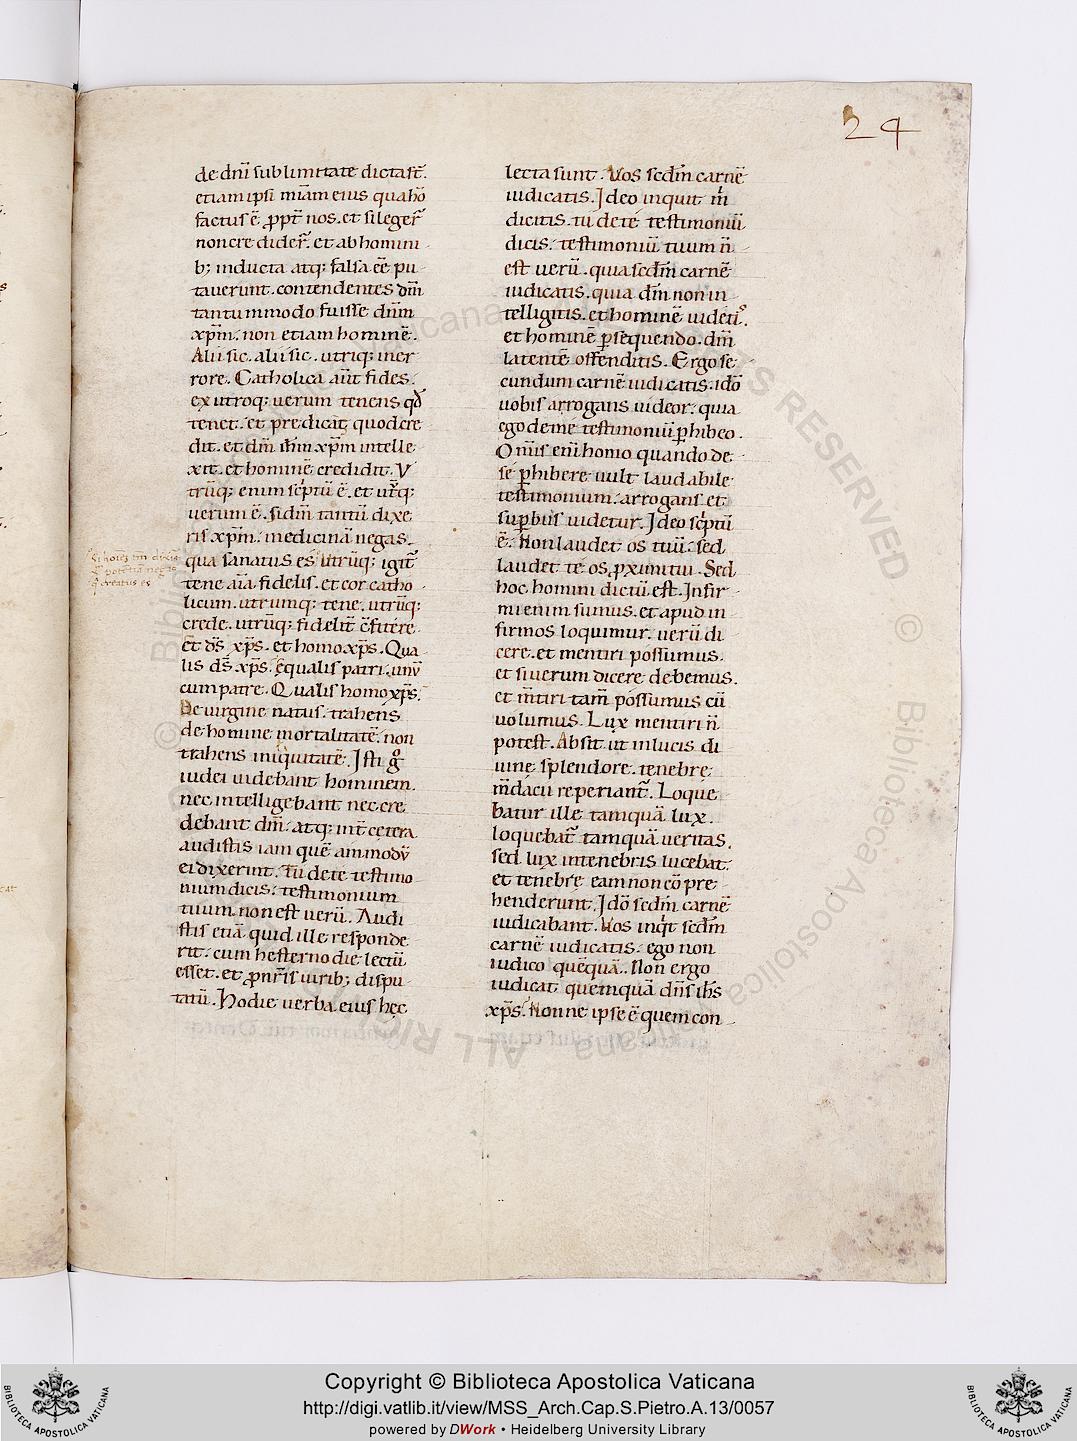 24
de dn̄i sublimitate dictast̄.
etiam ipsi mīam eius qua hō
factus ē ꝓpt̄ nos. et si leger̄
non credider̄. et ab homini
b; inducta atq; falsa eē pu
taverunt. contendentes dm̄
tantummodo fuisse dnm̄
xpm̄. non etiam hominē.
Alii sic. alii sic. utriq; in er
rore. Catholica aūt fides.
ex utroq; verum tenens qđ
tenet. et predicat quod cre
dit. et dm̄ ihm̄ xpm̄ intelle
xit. et hominē credidit. V
trūq; enim scptū ē. et utrq;
verum ē. si dm̄ tantū dixe
ris xpm̄. medicinā negas.
qua sanatus es. utrūq; igit̄
tene aīa fidelis. et cor catho
licum. utrumq; tene. utrūq;
crede. utrūq; fidelit̄ cfitere
et ds̄ xps̄. et homo xps̄. Qua
lis ds̄ xps̄. ęqualis patri. unū
cum patre. Qualis homo xps̄.
De virgine natus. trahens
de homine mortalitatē. non
trahens iniquitatē. Isti g̊
iudei videbant hominem.
nec intelligebant nec cre
debant dm̄. atq; int̄ cetera
audistis iam quē ammodū
ei dixerunt. Tu de te testimo
nium dicis. testimonium
tuum non est verū. Audi
stis etiā quid ille responde
rit. cum hesterno die lectū
esset. et ꝓ nr̄is virib; dispu
tatū. Hodie verba eius hęc
lecta sunt. Vos scdm̄ carnē
iudicatis. Ideo inquit m̄
dicitis. tu de te testimoniū
dicis. testimoniū tuum n̄
est verū. quia scdm̄ carnē
iudicatis. quia dm̄ non in
telligitis. et hominē videtis.
et hominē ꝑsequendo. dm̄
latentē offenditis. Ergo se
cundum carnē iudicatis. idō
vobis arrogans videor. quia
ego de me testimoniū ꝑhibeo.
Om̄is enī homo quando de
se ꝑhibere vult laudabile
testimonium. arrogans et
suꝑbus videtur. Ideo scptū
ē. Non laudet os tuū. sed
laudet te os ꝓximi tui. Sed
hoc homini dictū est. Infir
mi enim sumus. et apud in
firmos loquimur. verū di
cere. et mentiri possumus.
et si verum dicere debemus.
et m̄tiri tam̄ possumus cū
volumus. Lux mentiri n̄
potest. Absit ut in lucis di
vine splendore. tenebre
m̄dacii reperiant̄. Loque
batur ille tamquā lux.
loquebat̄ tamquā veritas.
sed lux in tenebris lucebat.
et tenebrę eam non cōpre
henderunt. Idō scdm̄ carnē
iudicabant. Vos inqt scdm̄
carnē iudicatis. ego non
iudico quēquā. Non ergo
iudicat quemquā dn̄s ih̄s
xps̄. Nonne ipse ē quem con
Copyright © Biblioteca Apostolica Vaticana
http://digi.vatlib.it/view/MSS_Arch.Cap.S.Pietro.A.13/0057
powered by DWork • Heidelberg University Library
BIBLIOTECA APOSTOLICA VATICANA
BIBLIOTECA APOSTOLICA VATICANA